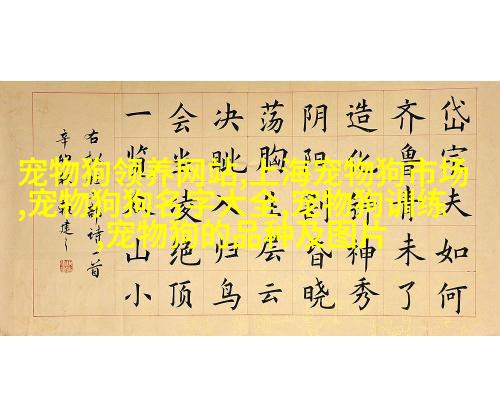 宠物狗领养网站,上海宠物狗市场
,宠物狗狗名字大全,宠物狗训练
,宠物狗的品种及图片
岱宗夫如何
齐鲁青未了
造化钟神秀
阴阳割昏晓
荡胸生层云
决眦入归鸟
会当凌绝顶
一览众山小
右诗一首
辛建